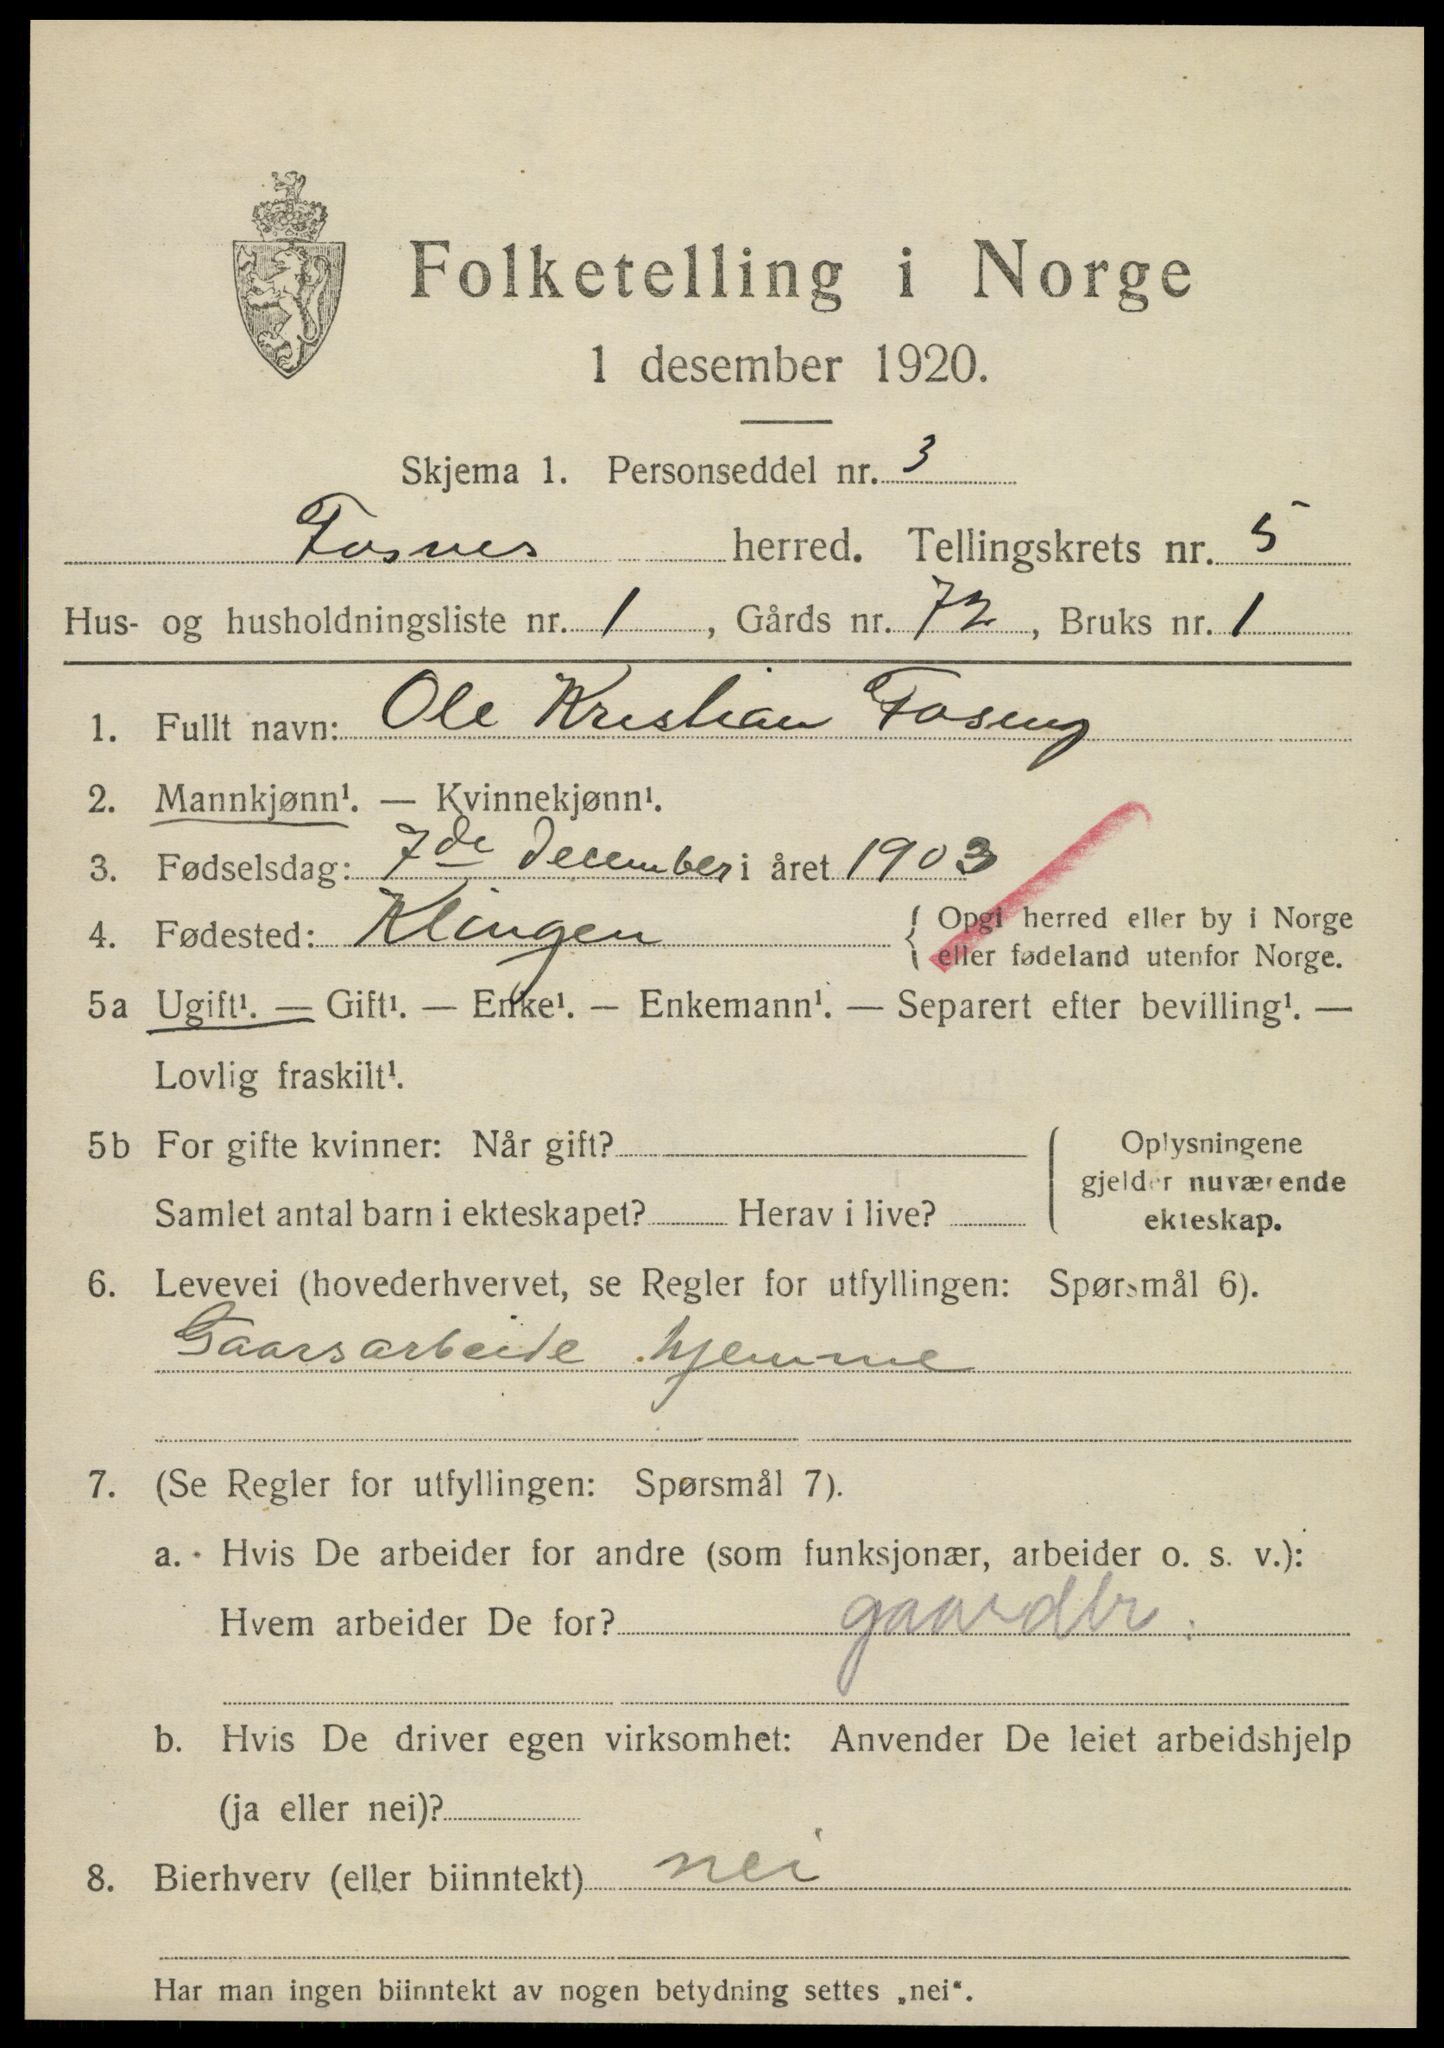 Folketelling i Norge
1 desember 1920.
Skjema 1. Personseddel nr. 3
Fosnes herred. Tellingskrets nr. 5
Hus- og husholdningsliste nr. 1, Gårds nr. 72, Bruks nr. 1
1. Fullt navn: Ole Kristian
2. Mannkjønn¹. — Kvinnekjønn¹.
3. Fødselsdag: 7de december i året 1903
4. Fødested: Klingen { Opgi herred eller by i Norge
eller fødeland utenfor Norge.
5a Ugift¹. — Gift¹. — Enke¹. — Enkemann¹. — Separert efter bevilling¹. —
Lovlig fraskilt¹.
5b For gifte kvinner: Når gift?
Samlet antal barn i ekteskapet? Herav i live?
Oplysningene
gjelder nuværende
ekteskap.
6. Levevei (hovederhvervet, se Regler for utfyllingen: Spørsmål 6).
Gaarsarbeide hjemme
7. (Se Regler for utfyllingen: Spørsmål 7).
a. Hvis De arbeider for andre (som funksjonær, arbeider o. s. v.):
Hvem arbeider De for? gaardbr.
b. Hvis De driver egen virksomhet: Anvender De leiet arbeidshjelp
(ja eller nei)?
8. Bierhverv (eller biinntekt) nei
Har man ingen biinntekt av nogen betydning settes „nei“.